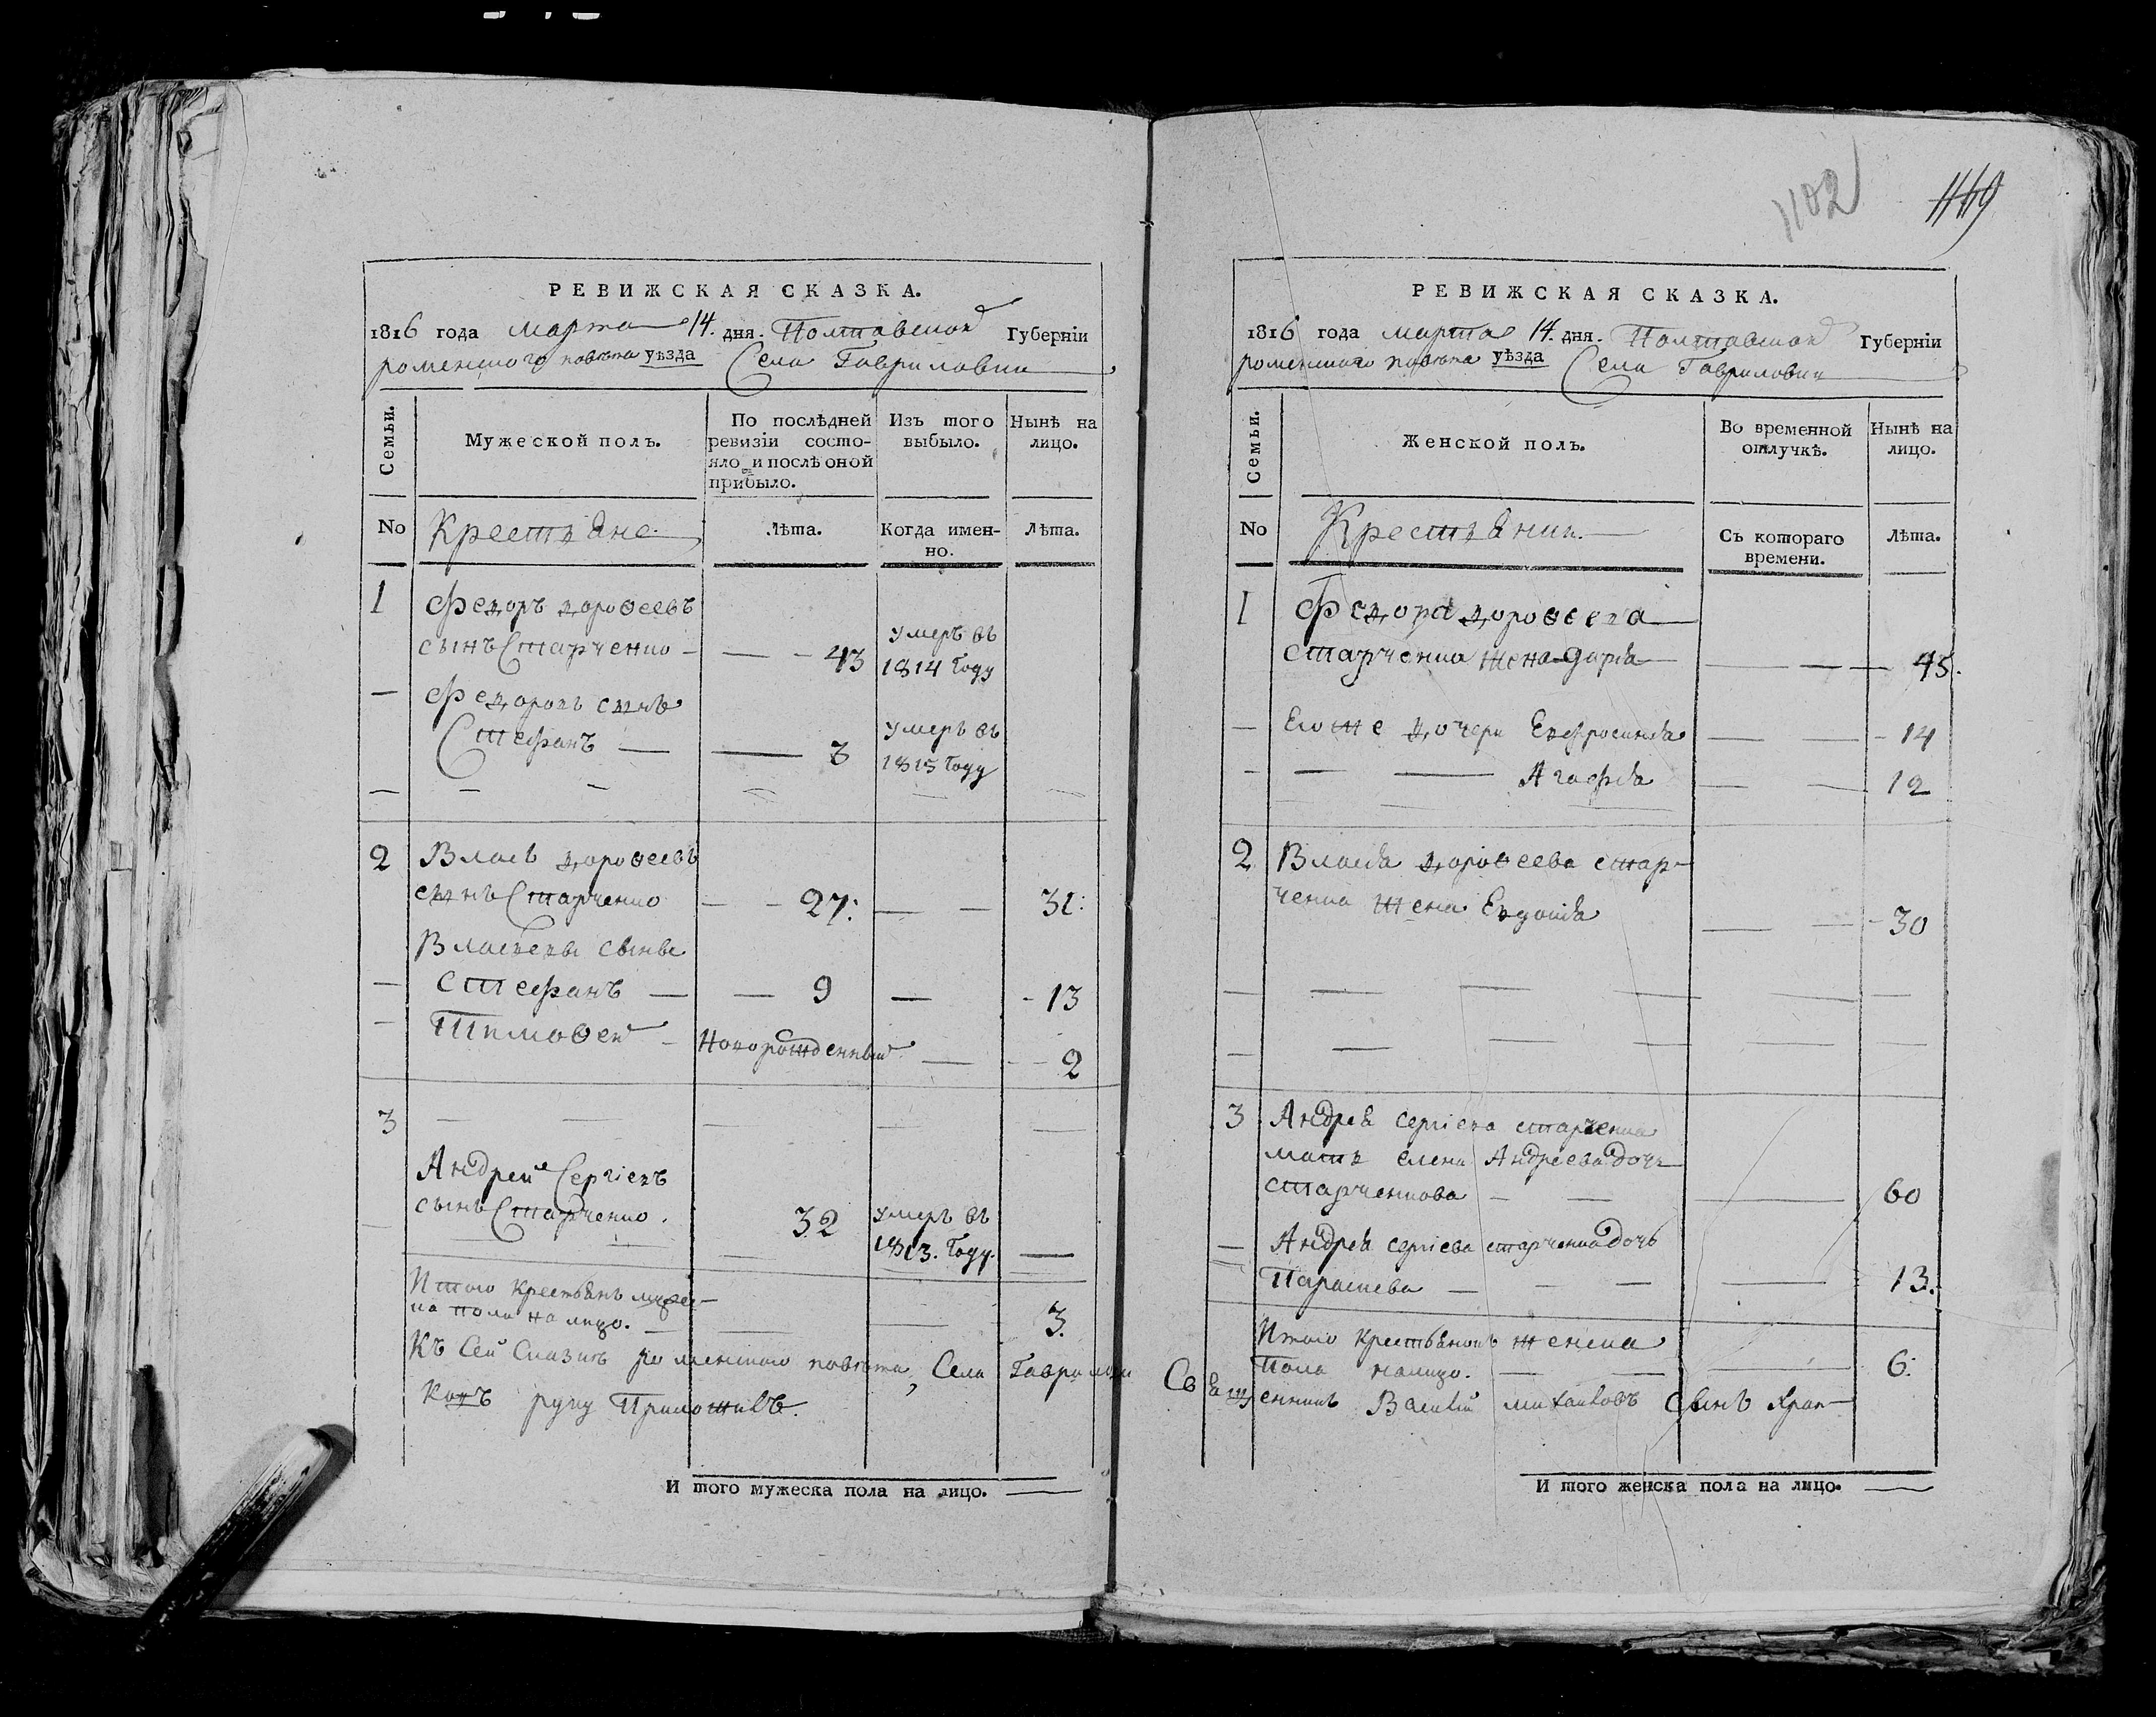 РЕВИЖСКАЯ СКАЗКА.
1816 года марта 14. дня. Полтавской Губернiи
роменского повѣта уѣзда Села Гавриловки
Семьи.
Мужеской полъ.
По послѣдней ревизiи состо-
яло и послѣ оной прибыло.
Изъ того выбыло.
Нынѣ на лицо.
No Крестьяне. Лѣта. Когда имен-
но. Лѣта.
1 Федоръ Дорофеевъ
сынъ Старченко 43 умеръ въ
1814 году
Федоровъ сынъ
Стефанъ 3 умеръ въ
1815 году
2 Власъ Дорофеевъ
сынъ Старченко 27: 31:
Власовы сыны
Стефанъ 9 13
Тимофей Новорожденный 2
3
Андрей Сергiевъ
сынъ Старченко. 32 умеръ въ
1813. году.
Итого крестьянъ мужес-
ка пола на лицо. 3.
Къ Сей Сказкѣ роменского повѣта, Села Гаврилов
ковъ руку Приложивъ.
И того мужеска пола на лицо.
1102
1169
РЕВИЖСКАЯ СКАЗКА.
1816 года марта 14. дня. Полтавской Губернiи
роменского повѣта уѣзда Села Гавриловки
Семьи.
Женской полъ.
Во временной отлучкѣ.
Нынѣ на лицо.
No Крестьянки. Съ котораго
времени. Лѣта.
1 Федора Дорофеева
Старченка жена Дарья 45.
Его же дочери Евфросинья 14
Агафья 12
2 Власа Дорофеева Стар-
ченка жена Евдокия 30
3 Андрея Сергiева Старченка
мать Елена Андреева дочь
Старченкова 60
Андрея Сергiева Старченка дочь
Параскева 13.
Итого крестьянокъ женска
пола налицо. 6.
Священникъ Василий Михайловъ Сынъ
И того женска пола на лицо.